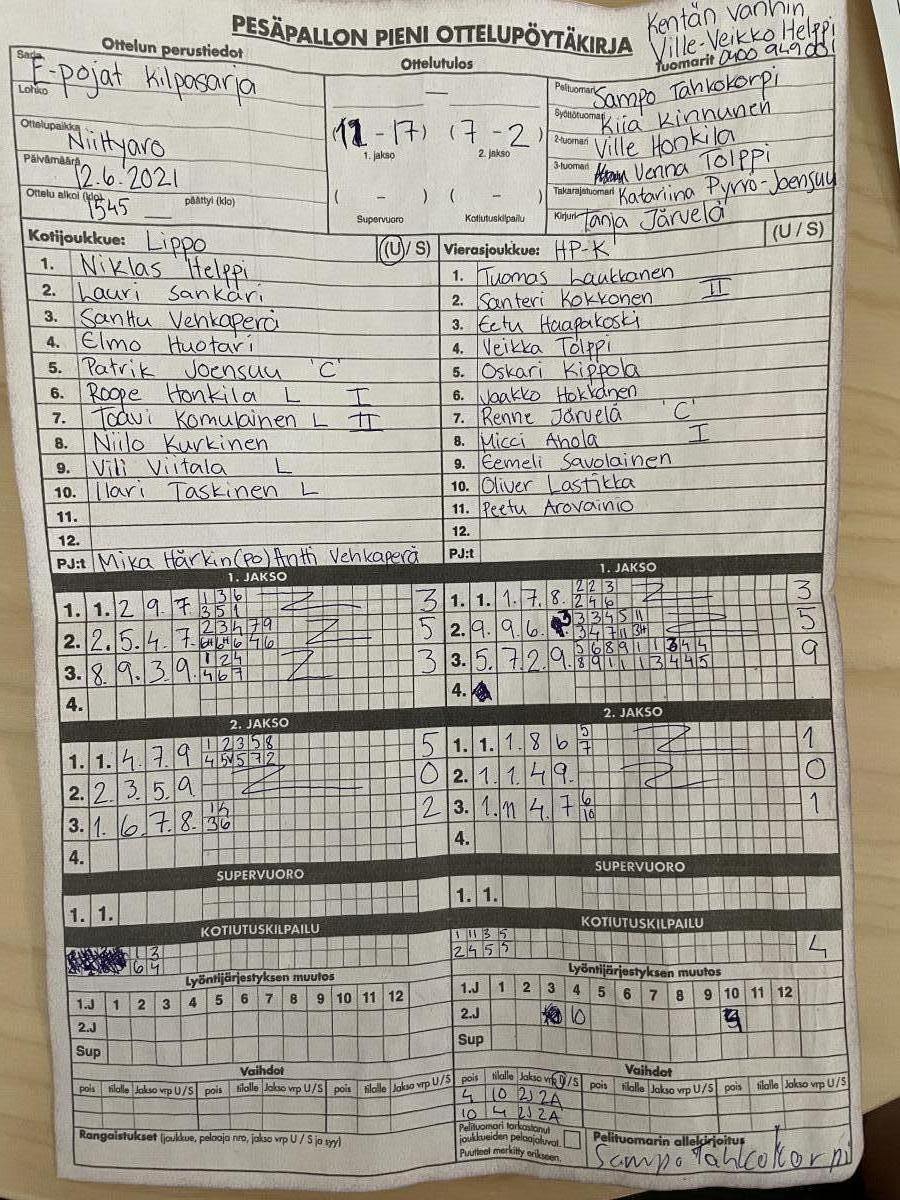 PESÄPALLON PIENI OTTELUPÖYTÄKIRJA
Kentän vanhin
Ville-Veikko Helppi
Ottelun perustiedot
Ottelutulos
Tuomarit
Sarja F-pojat kilpasarja
Lohko
Ottelupaikka Niittyaro
Päivämäärä 12.6.2021
Ottelu alkoi (klo) 1545 päättyi (klo)
(11 - 17) (7 - 2)
1. jakso 2. jakso
( - ) ( - )
Supervuoro Kotiutuskilpailu
Pelituomari Sampo Tahkokorpi
Syöttötuomari Kiia Kinnunen
2-tuomari Ville Honkila
3-tuomari Venna Tolppi
Takarajatuomari Katariina Pyrrö-Joensuu
Kirjuri Tanja Järvelä
Kotijoukkue: Lippo (U / S)
1. Niklas Helppi
2. Lauri Sankari
3. Santtu Vehkaperä
4. Elmo Huotari
5. Patrik Joensuu 'C'
6. Roope Honkila L I
7. Toavi Komulainen L II
8. Niilo Kurkinen
9. Vili Viitala L
10. Ilari Taskinen L
11.
12.
PJ:t Mika Härkin(po) Antti Vehkaperä
Vierasjoukkue: HP-K (U / S)
1. Tuomas Laukkanen
2. Santeri Kokkonen II
3. Eetu Haapakoski
4. Veikka Tolppi
5. Oskari Kippola
6. Jaakko Hokkanen
7. Renne Järvelä 'C'
8. Micci Ahola I
9. Eemeli Savolainen
10. Oliver Lastikka
11. Peetu Arovainio
12.
PJ:t
1. JAKSO
1. 1. 2 9. 7. 3
2. 2. 5. 4. 7. 5
3. 8. 9. 3. 9. 3
4.
2. JAKSO
1. 1. 4. 7. 9 5
2. 2. 3. 5. 9. 0
3. 1. 6. 7. 8. 2
4.
SUPERVUORO
1. 1.
KOTIUTUSKILPAILU
1 3
6 4
1. JAKSO
1. 1. 1. 7. 8. 3
2. 9. 9. 6. 5
3. 5. 7. 2. 9. 9
4.
2. JAKSO
1. 1. 1. 8 6 1
2. 1. 1. 4 9. 0
3. 1. 11 4. 7 1
4.
SUPERVUORO
1. 1.
KOTIUTUSKILPAILU
1 11 3 5
2 4 5 5
4
Lyöntijärjestyksen muutos
1.J 1 2 3 4 5 6 7 8 9 10 11 12
2.J
Sup
Vaihdot
pois tilalle Jakso vrp U/S pois tilalle Jakso vrp U/S pois tilalle Jakso vrp U/S
Rangaistukset (joukkue, pelaaja nro, jakso vrp U / S ja syy)
Lyöntijärjestyksen muutos
1.J 1 2 3 4 5 6 7 8 9 10 11 12
2.J 10
Sup
Vaihdot
pois tilalle Jakso vrp U/S pois tilalle Jakso vrp U/S pois tilalle Jakso vrp U/S
4 10 2J 2A
10 4 2J 2A
Pelituomari tarkastanut
joukkueiden pelaajaluvat.
Puutteet merkitty erikseen.
Pelituomarin allekirjoitus
Sampo Tahkokorpi